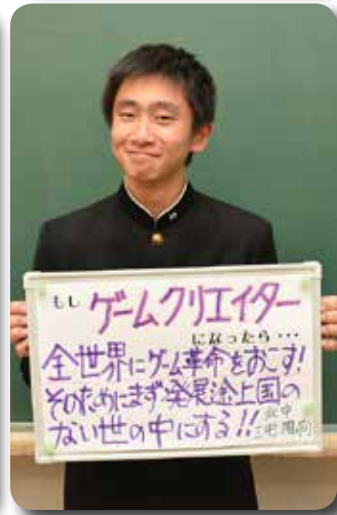 もし ゲームクリエイター
になったら…
全世界にゲーム革命をおこす!
そのためにまず発展途上国の
ない世の中にする!!
北中